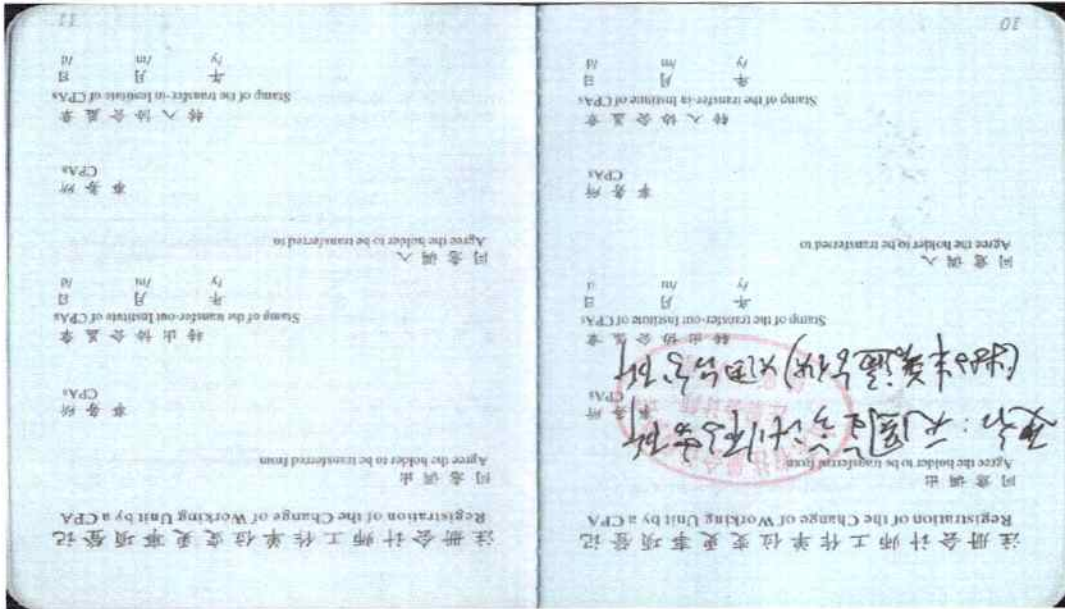 注册会计师工作单位变更事项登记
Registration of the Change of Working Unit by a CPA
同意调出
Agree the holder to be transferred from
更名：天圆全会计师事务所
事务所
CPAs
(特殊普通合伙)
转出协会盖章
Stamp of the transfer-out Institute of CPAs
年 月 日
/y /m /d
同意调入
Agree the holder to be transferred to
事务所
CPAs
转入协会盖章
Stamp of the transfer-in Institute of CPAs
年 月 日
/y /m /d
10
注册会计师工作单位变更事项登记
Registration of the Change of Working Unit by a CPA
同意调出
Agree the holder to be transferred from
事务所
CPAs
转出协会盖章
Stamp of the transfer-out Institute of CPAs
年 月 日
/y /m /d
同意调入
Agree the holder to be transferred to
事务所
CPAs
转入协会盖章
Stamp of the transfer-in Institute of CPAs
年 月 日
/y /m /d
11